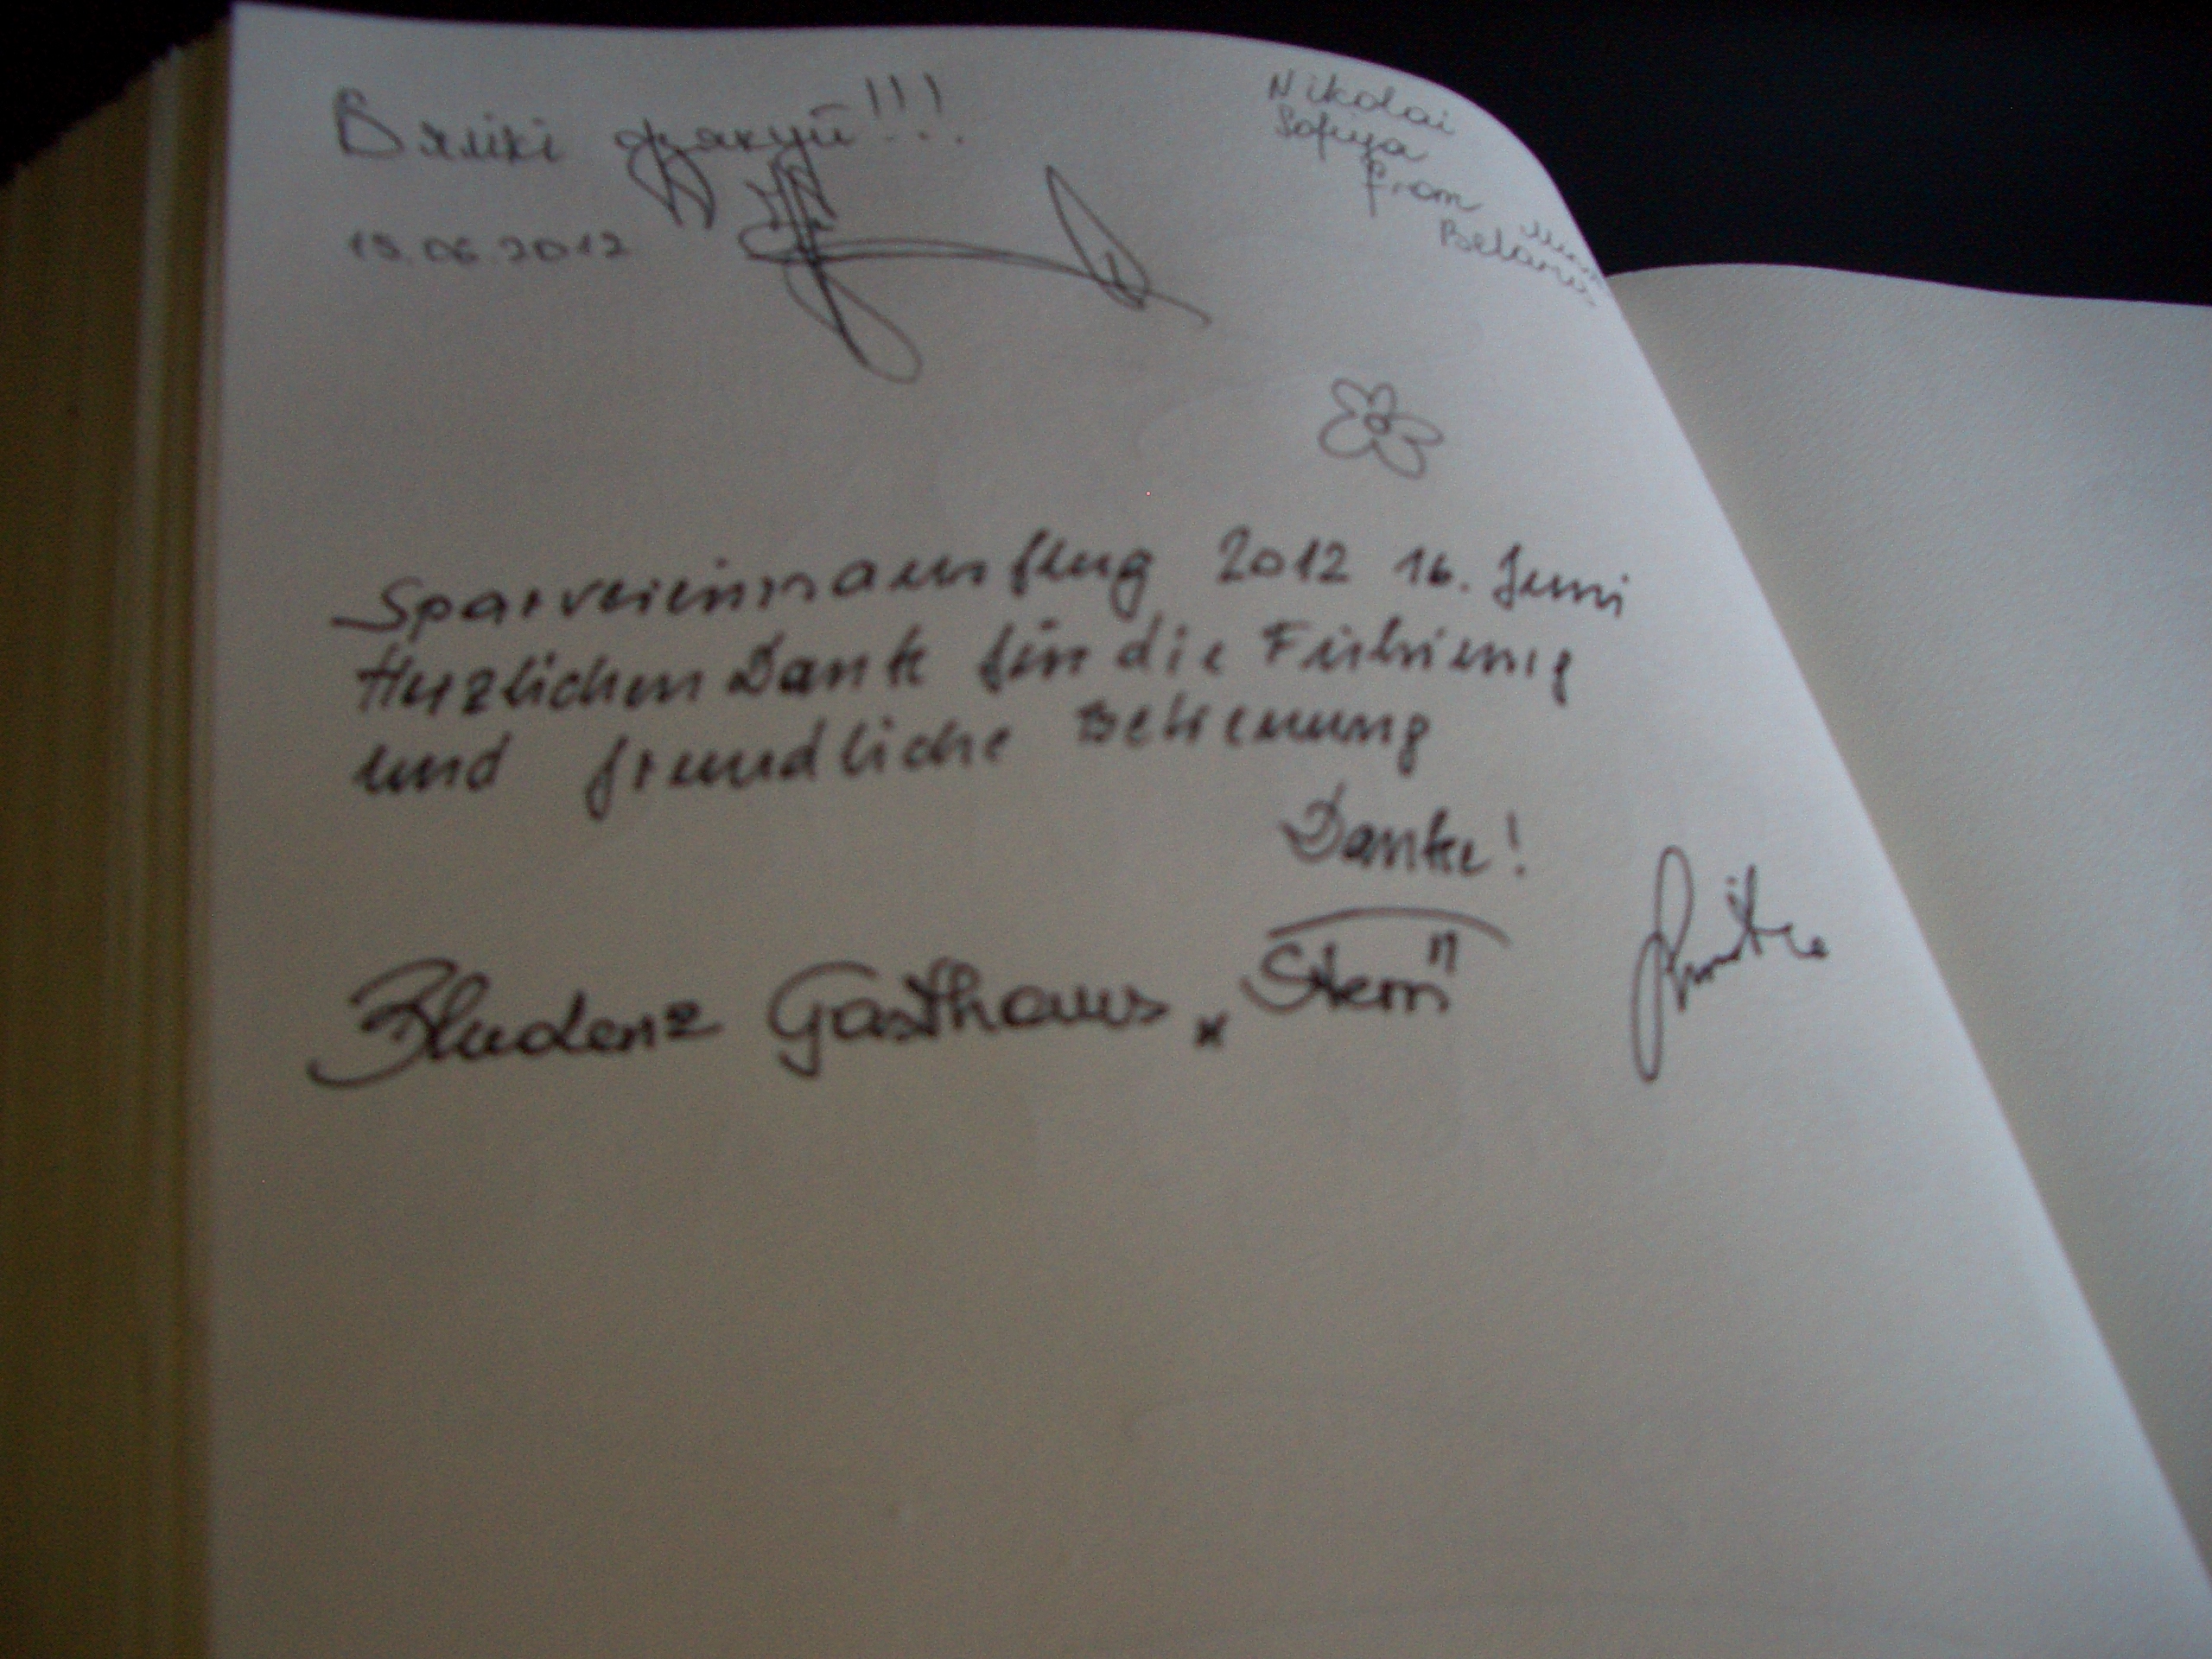 Вялікі дзякуй!!!
15.06.2012
Nikolai
Sofiya
from
Belarus
Sparvereinsausflug 2012 16. Juni
Herzlichen Dank für die Führung
und freundliche Betreuung
Danke!
Bludenz Gasthaus „Stern"